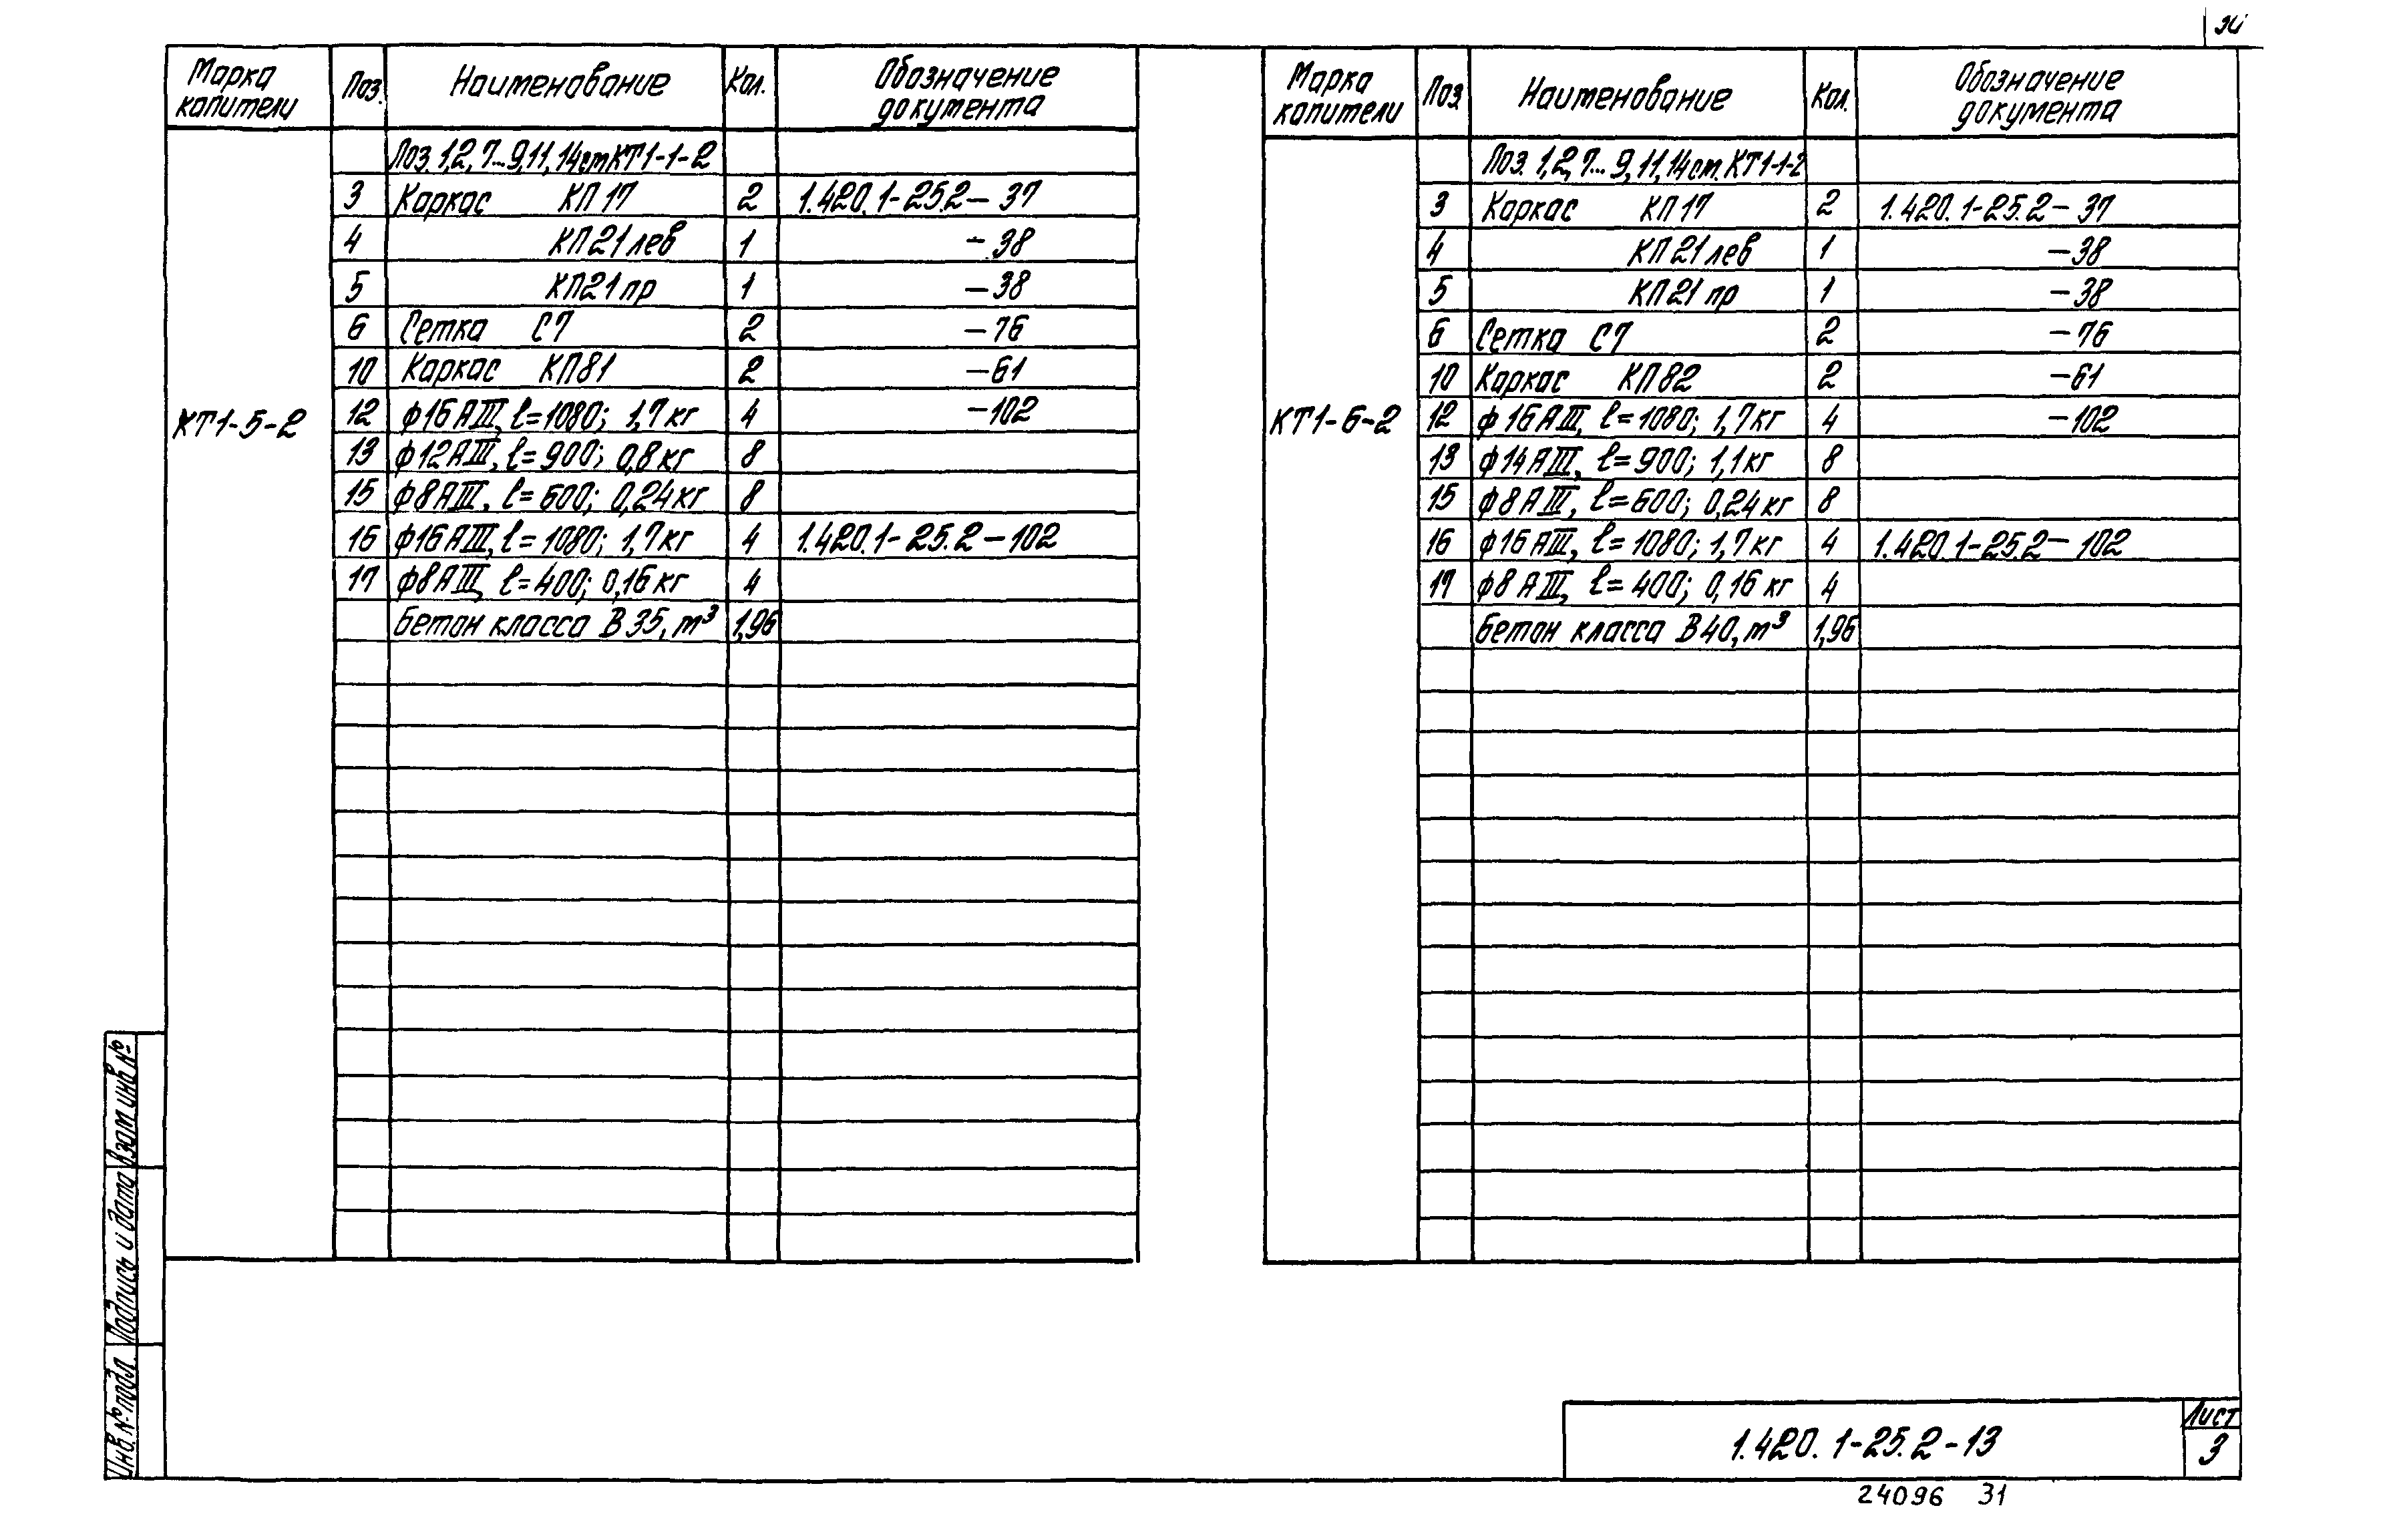 30
Марка капители Поз. Наименование Кол. Обозначение документа
Поз. 1,2,7...9,11,14 см КТ1-1-2
3 Каркас КП17 2 1.420.1-25.2-37
4 КП21лев 1 -38
5 КП21пр 1 -38
6 Сетка С7 2 -76
10 Каркас КП81 2 -61
КТ1-5-2 12 ф16АIII, l=1080; 1,7кг 4 -102
13 ф12АIII, l=900; 0,8кг 8
15 ф8АIII, l=600; 0,24кг 8
16 ф16АIII, l=1080; 1,7кг 4 1.420.1-25.2-102
17 ф8АIII, l=400; 0,16кг 4
Бетон класса В35, м³ 1,96
Марка капители Поз. Наименование Кол. Обозначение документа
Поз. 1,2,7...9,11,14 см. КТ1-1-2
3 Каркас КП17 2 1.420.1-25.2-37
4 КП21лев 1 -38
5 КП21пр 1 -38
6 Сетка С7 2 -76
10 Каркас КП82 2 -61
КТ1-6-2 12 ф16АIII, l=1080; 1,7кг 4 -102
13 ф14АIII, l=900; 1,1кг 8
15 ф8АIII, l=600; 0,24кг 8
16 ф16АIII, l=1080; 1,7кг 4 1.420.1-25.2-102
17 ф8АIII, l=400; 0,16кг 4
Бетон класса В40, м³ 1,96
Взам инв №
Подпись и дата
Инв. № подл.
1.420.1-25.2-13
Лист
3
24096 31